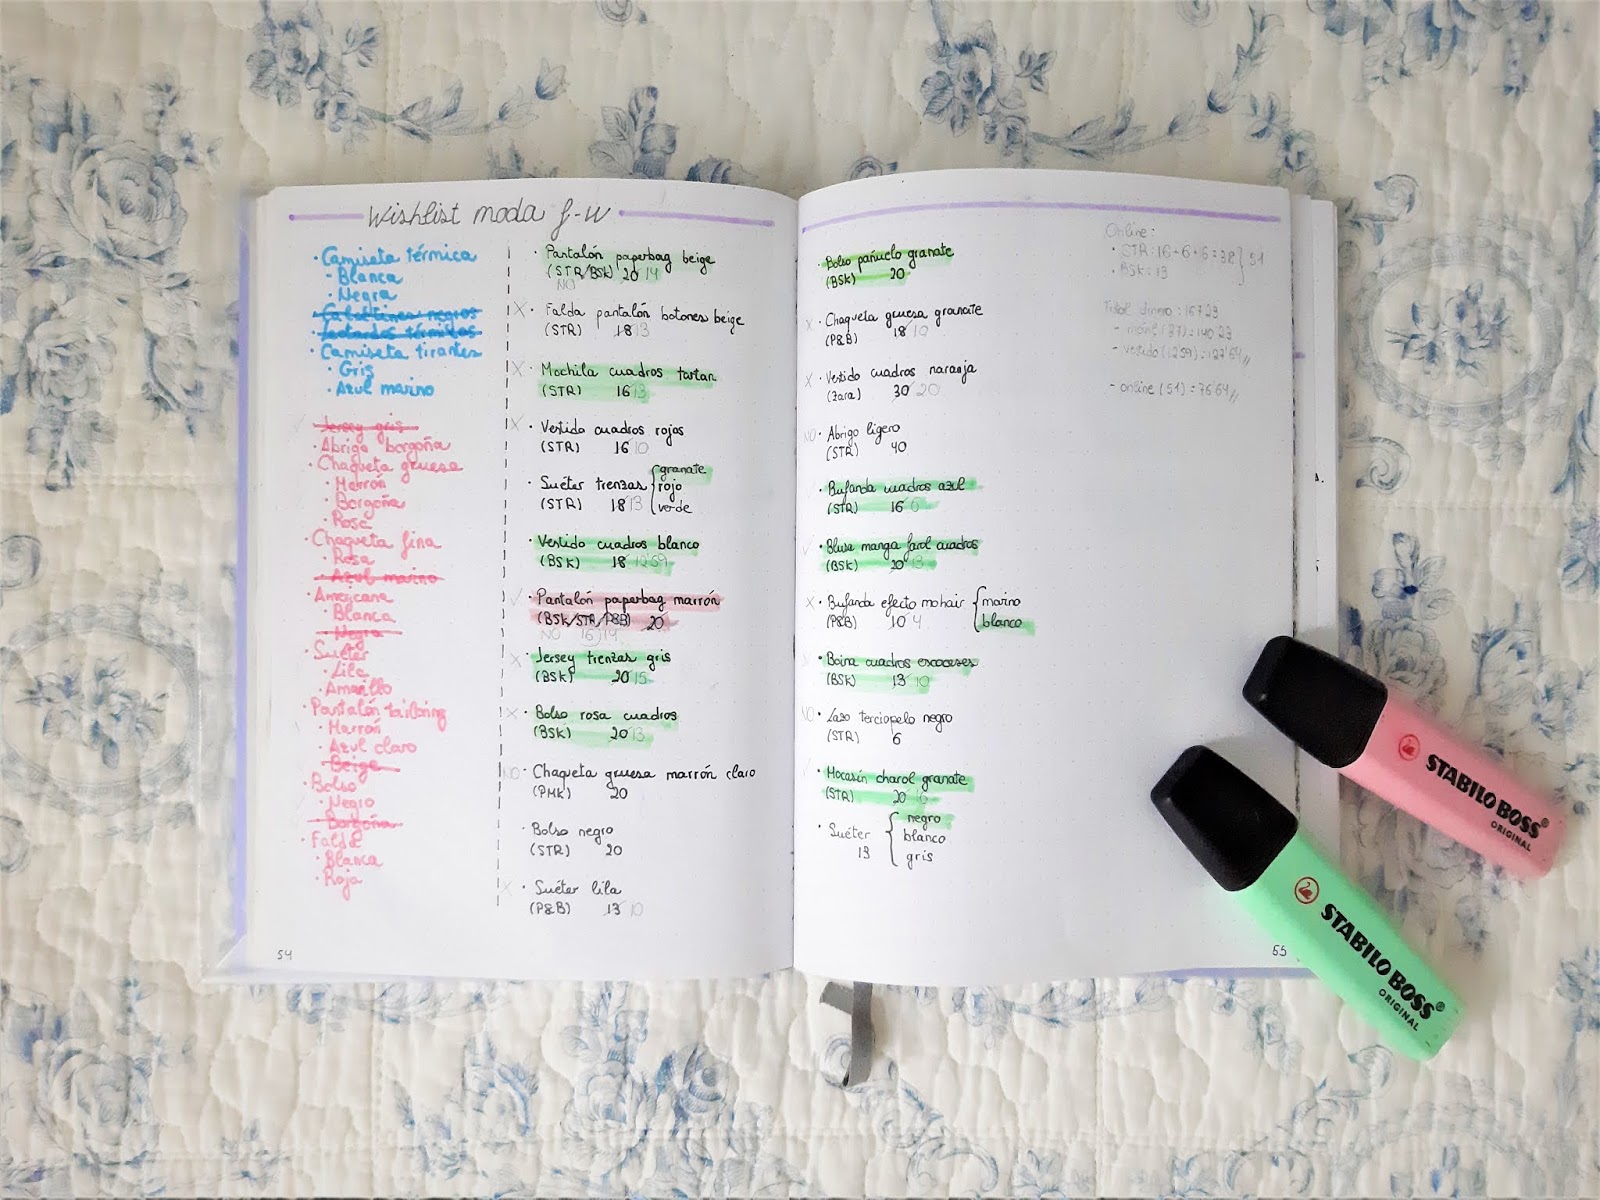 Wishlist moda f-w
· Camiseta térmica
- Blanca
· Negra
· Calcetines negros
· Leotardos térmicos
· Camiseta tirantes
· Gris
· Azul marino
· Jersey gris
· Abrigo borgoña
· Chaqueta gruesa
· Marrón
· Borgoña
· Rosa
· Chaqueta fina
· Rosa
· Azul marino
· Americana
· Blanca
· Negra
· Suéter
· Lila
· Amarillo
· Pantalón tailoring
· Marrón
· Azul claro
· Beige
· Bolso
· Negro
· Borgoña
· Falda
· Blanca
· Roja
54
· Pantalón paperbag beige
(STR/BSK) 20 14
NO
X · Falda pantalón botones beige
(STR) 18 13
X · Mochila cuadros tartan
(STR) 16 13
X · Vestido cuadros rojos
(STR) 16 10
· Suéter trenzas { granate
rojo
(STR) 18 13 verde
· Vestido cuadros blanco
(BSK) 18 12'59
✓ · Pantalón paperbag marrón
(BSK/STR/P&B) 20
NO 16 14
X · Jersey trenzas gris
(BSK) 20 15
X · Bolso rosa cuadros
(BSK) 20 13
NO · Chaqueta gruesa marrón claro
(PMK) 20
· Bolso negro
(STR) 20
X · Suéter lila
(P&B) 13 10
· Bolso pañuelo granate
(BSK) 20
X · Chaqueta gruesa granate
(P&B) 18 10
X · Vestido cuadros naranja
(Zara) 30 20
NO · Abrigo ligero
(STR) 40
· Bufanda cuadros azul
(STR) 16 6
✓ · Blusa manga farol cuadros
(BSK) 20 13
X · Bufanda efecto mohair { marino
(P&B) 10 4 blanco
· Boina cuadros escoceses
(BSK) 13 10
NO · Lazo terciopelo negro
(STR) 6
· Mocasín charol granate
(STR) 20 16
· Suéter { negro
blanco
13 gris
Online:
· STR: 16+6+16=38 } 51
· BSK: 13
Total dinero: 167'23
- móvil (27): 140'23
- vestido (12'59): 127'64
- online (51): 76'64
55
STABILO BOSS®
ORIGINAL
STABILO BOSS®
ORIGINAL